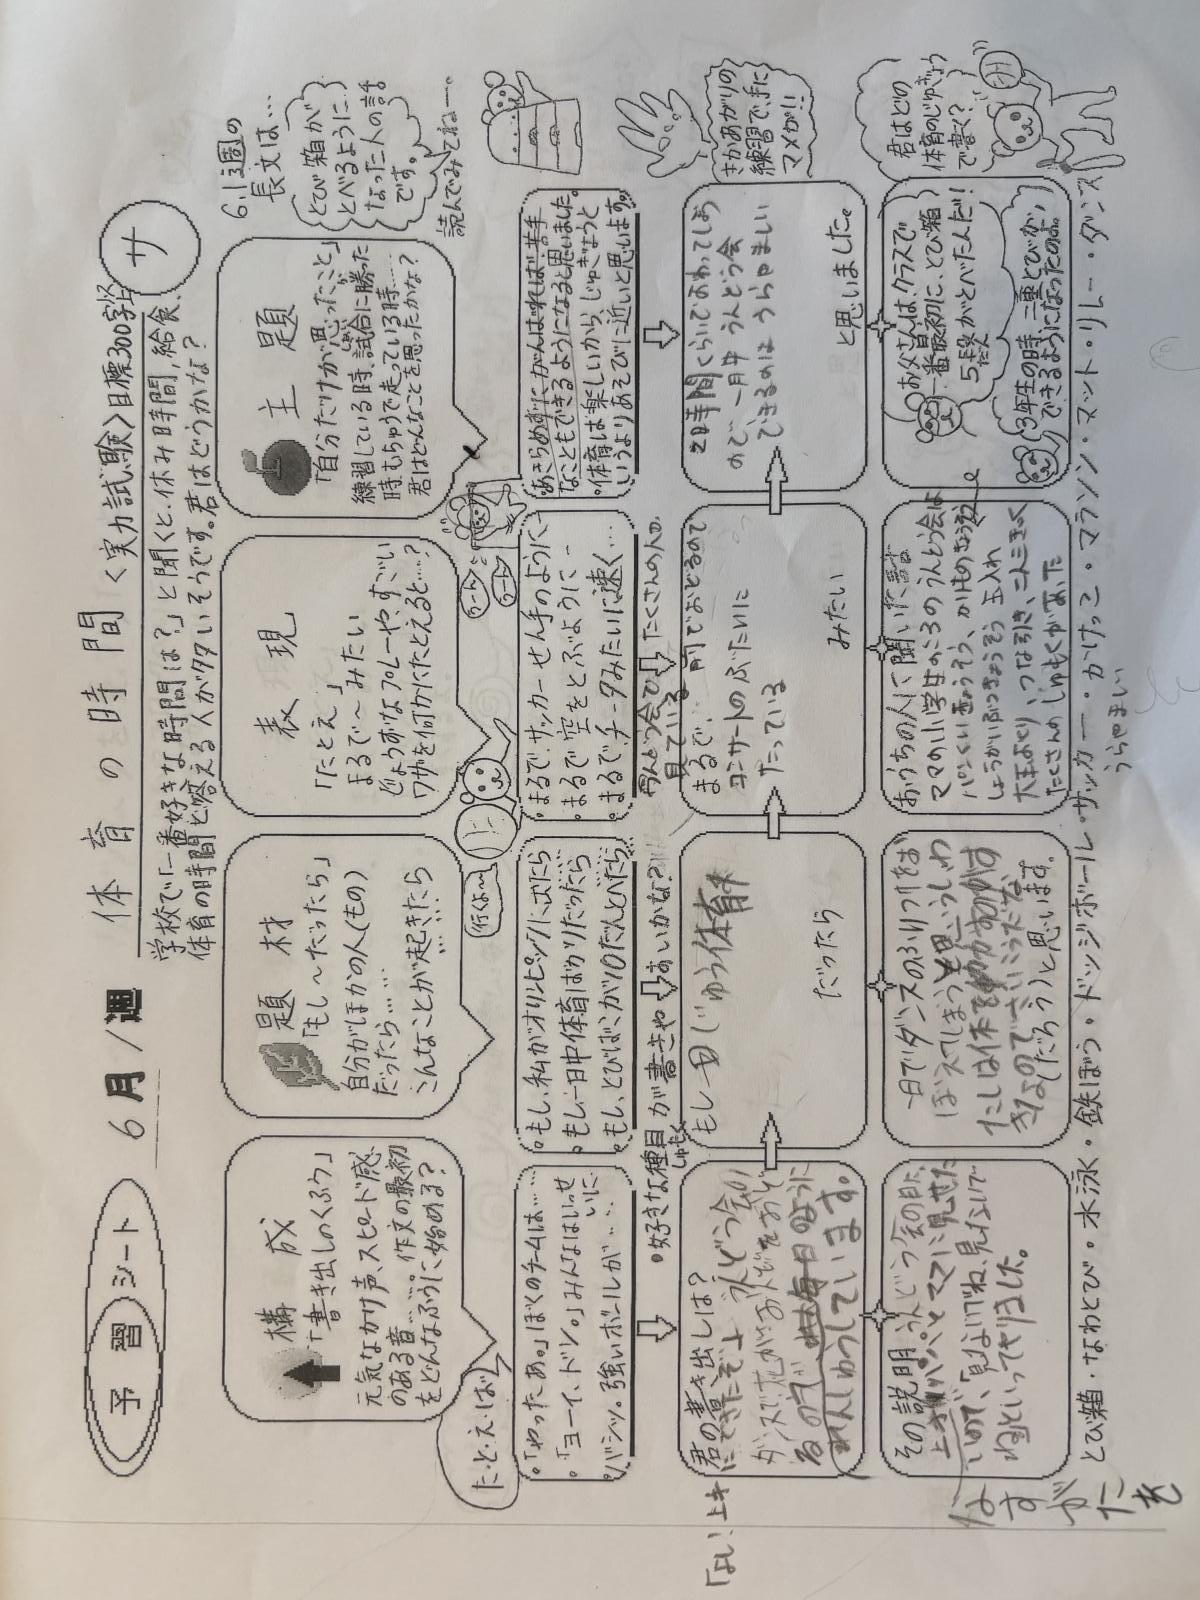 予習シート
6月1週
体育の時間
<実力試験>目標300字以上
サ
学校で「一番好きな時間は?」と聞くと、休み時間、給食、
体育の時間と答える人が多いそうです。君はどうかな?
6.1週の
長文は…
とび箱が
とべるように
なった人の話
です。
読んでみてねー。
構成
「書き出しのくふう」
元気なかけ声、スピード感
のある音……。作文の最初
をどんなふうに始める?
題材
「もし~だったら」
自分がほかの人(もの)
だったら……
こんなことが起きたら
……?
表現
「たとえ」
まるで~みたい
じょうずなプレーや、すごい
ワザを何かにたとえると……?
主題
「自分だけが思ったこと」
練習している時、試合に勝った
時、もちゅうで走っている時……
君はどんなことを思ったかな?
た・と・え・ば
行くよ~
。「やったあ。」ぼくのチームは……
。「ヨーイ、ドン。」みんなはいっせいに……
。バシッ。強いボールが……
。もし、私がオリンピックに出たら
。もし、一日中体育ばかりだったら
。もし、とびばこが10だんとべたら
。まるで、サッカーせん手のように…
。まるで空をとぶように…
。まるで、チータみたいに速く…
。あきらめずにがんばれば、苦手
なこともできるようになると思いました。
。体育は楽しいから、じゅぎょうと
いうよりあそびに近いと思います。
。好きな種目が書きやすいかな?
さかあがりの
練習で、手に
マメが!!
君の書き出しは?
「よし!上手
にできたぞ」
れんしゅうしています。
もし一日じゅう体育
だったら
うんどう会でたくさんの人が
見ている前でおどるので
まるで、
コンサートのぶたいに
たっている
みたい
2時間くらいでおわってしまう
ので、一月中うんどう会
できるのはうらやましい
と思いました。
君はどの
体育のじゅぎょう
で書く?
その説明
うんどう会の日に、
パパとママに見せた
いので、「見ないでね、見ないで
ね」といってやりました。
一日でダンスのふりつけをおぼ
えてしまうと思います。わ
たしは体をうごかすのがす
きなので
(だろう)と思います。
おうちの人に聞いた話は
ママの小学生のころのうんどう会は
パンくいきょうそう、かりものきょうそう
しょうがいぶつきょうそう 玉入れ
大玉ころがし、つな引き、二人三きゃく
たくさんのしゅもくがあった
お父さんは、クラスで
一番最初に、とび箱
5段がとべた人だ!
3年生の時、二重とびが
できるようになったのよ。
とび箱・なわとび・水泳・鉄ぼう・ドッジボール・サッカー・かけっこ・マラソン・マット・リレー・ダンス
うらやましい
すがたを